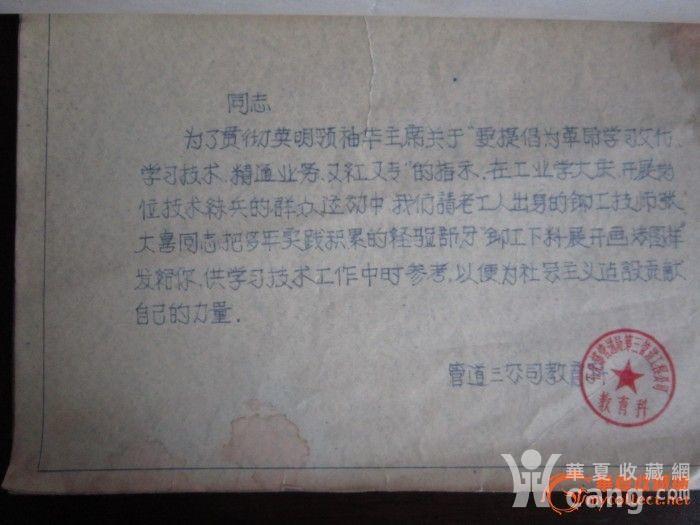 同志
为了贯彻英明领袖华主席关于“要提倡为革命学习文化、
学习技术、精通业务、又红又专”的指示、在工业学大庆、开展岗
位技术练兵的群众运动中、我们請老工人出身的鉚工技师张
大喜同志、把多年实践积累的经验部分“鉚工下料展开画法图样
发给你、供学习技术工作中时参考，以便为社会主义造設贡献
自己的力量．
管道三公司教育
第三管道工程公司
教育科
華夏收藏網
mycollect.net